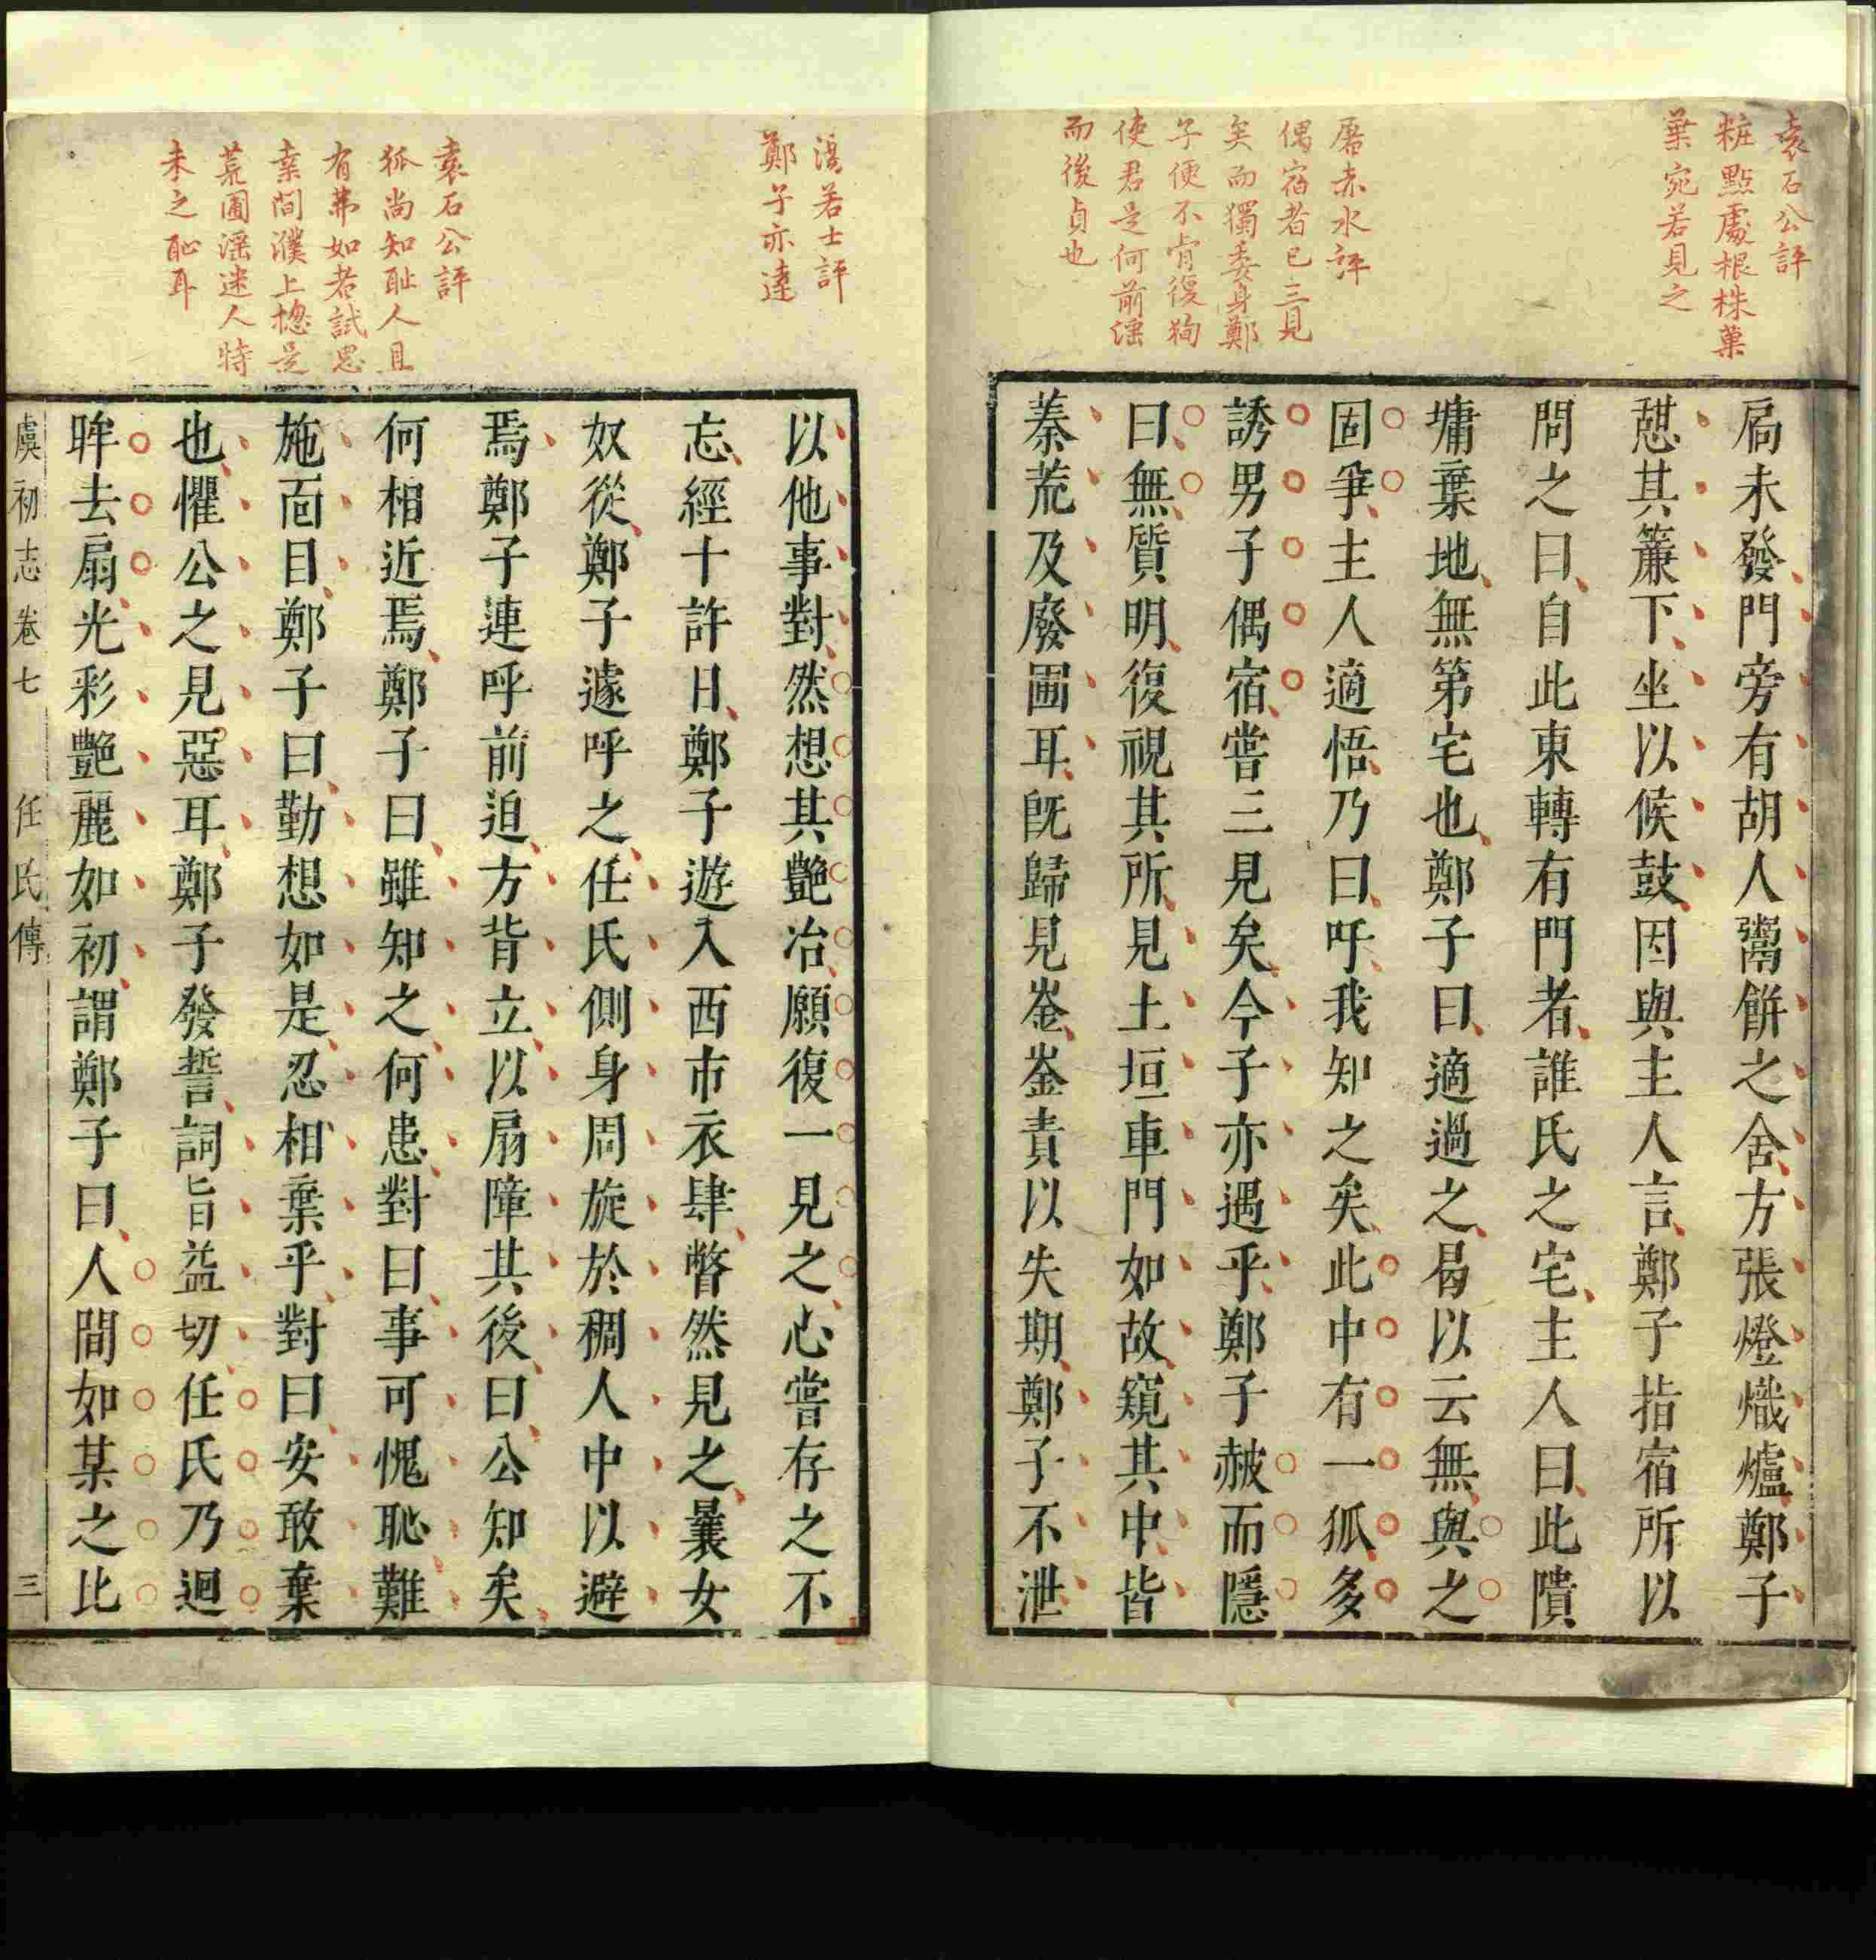 袁石公評
粧點處根株菓
葉宛若見之
屠赤水評
偶宿者已三見
矣而獨委身鄭
子便不肯復狥
使君是何前淫
而後貞也
扃未發門旁有胡人鬻餅之舍方張燈熾爐鄭子
憇其簾下坐以候鼓因與主人言鄭子指宿所以
問之曰自此東轉有門者誰氏之宅主人曰此隤
墉棄地無第宅也鄭子曰適過之曷以云無與之
固爭主人適悟乃曰吁我知之矣此中有一狐多
誘男子偶宿嘗三見矣今子亦遇乎鄭子赧而隱
曰無質明復視其所見土垣車門如故窺其中皆
蓁荒及廢圃耳旣歸見崟崟責以失期鄭子不泄
湯若士評
鄭子亦達
袁石公評
狐尚知耻人且
有弗如者試思
桒間濮上揔是
荒圃淫迷人特
未之耻耳
以他事對然想其艷冶願復一見之心嘗存之不
忘經十許日鄭子遊入西市衣肆瞥然見之曩女
奴從鄭子遽呼之任氏側身周旋於稠人中以避
焉鄭子連呼前迫方背立以扇障其後曰公知矣
何相近焉鄭子曰雖知之何患對曰事可愧恥難
施面目鄭子曰勤想如是忍相棄乎對曰安敢棄
也懼公之見惡耳鄭子發誓詞旨益切任氏乃迴
眸去扇光彩艷麗如初謂鄭子曰人間如某之比
虞初志卷七 任氏傳 三